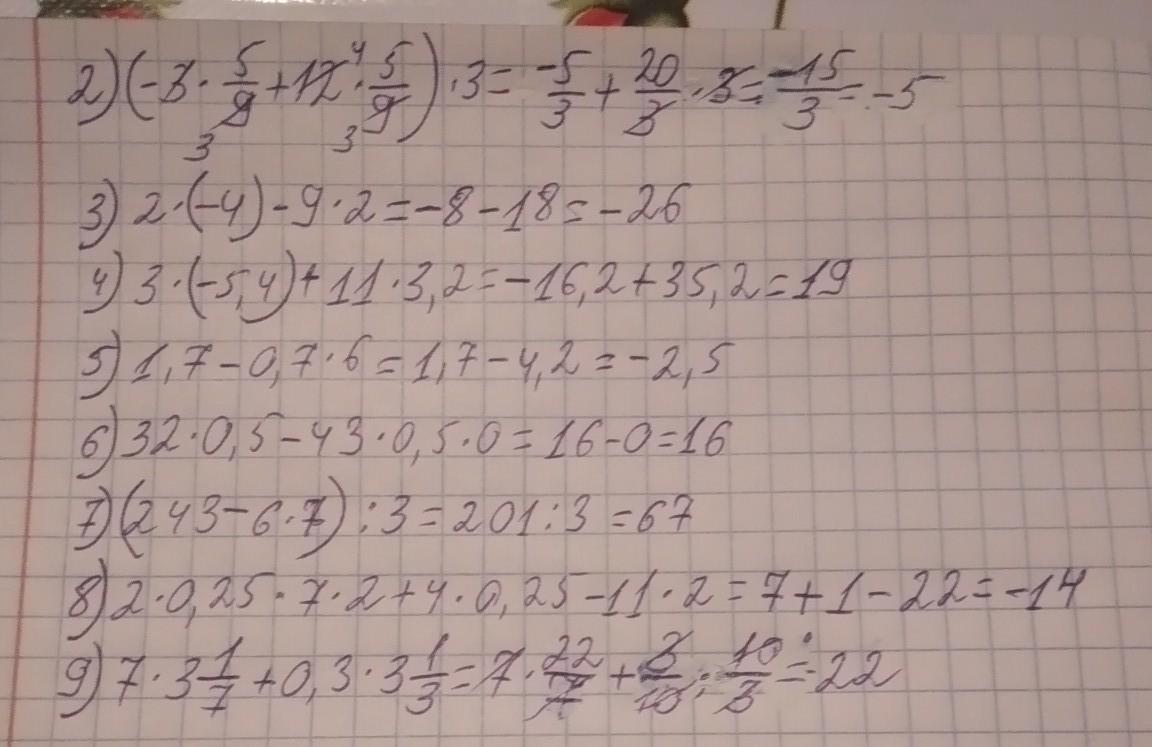 2) (-3 · 5/9 + 12 · 5/9) · 3 = -5/3 + 20/3 · 3 = -15/3 = -5
3) 2 · (-4) - 9 · 2 = -8 - 18 = -26
4) 3 · (-5,4) + 11 · 3,2 = -16,2 + 35,2 = 19
5) 1,7 - 0,7 · 6 = 1,7 - 4,2 = -2,5
6) 32 · 0,5 - 43 · 0,5 · 0 = 16 - 0 = 16
7) (243 - 6 · 7) : 3 = 201 : 3 = 67
8) 2 · 0,25 · 7 · 2 + 4 · 0,25 - 11 · 2 = 7 + 1 - 22 = -14
9) 7 · 3 1/7 + 0,3 · 3 1/3 = 7 · 22/7 + 3/10 · 10/3 = 22